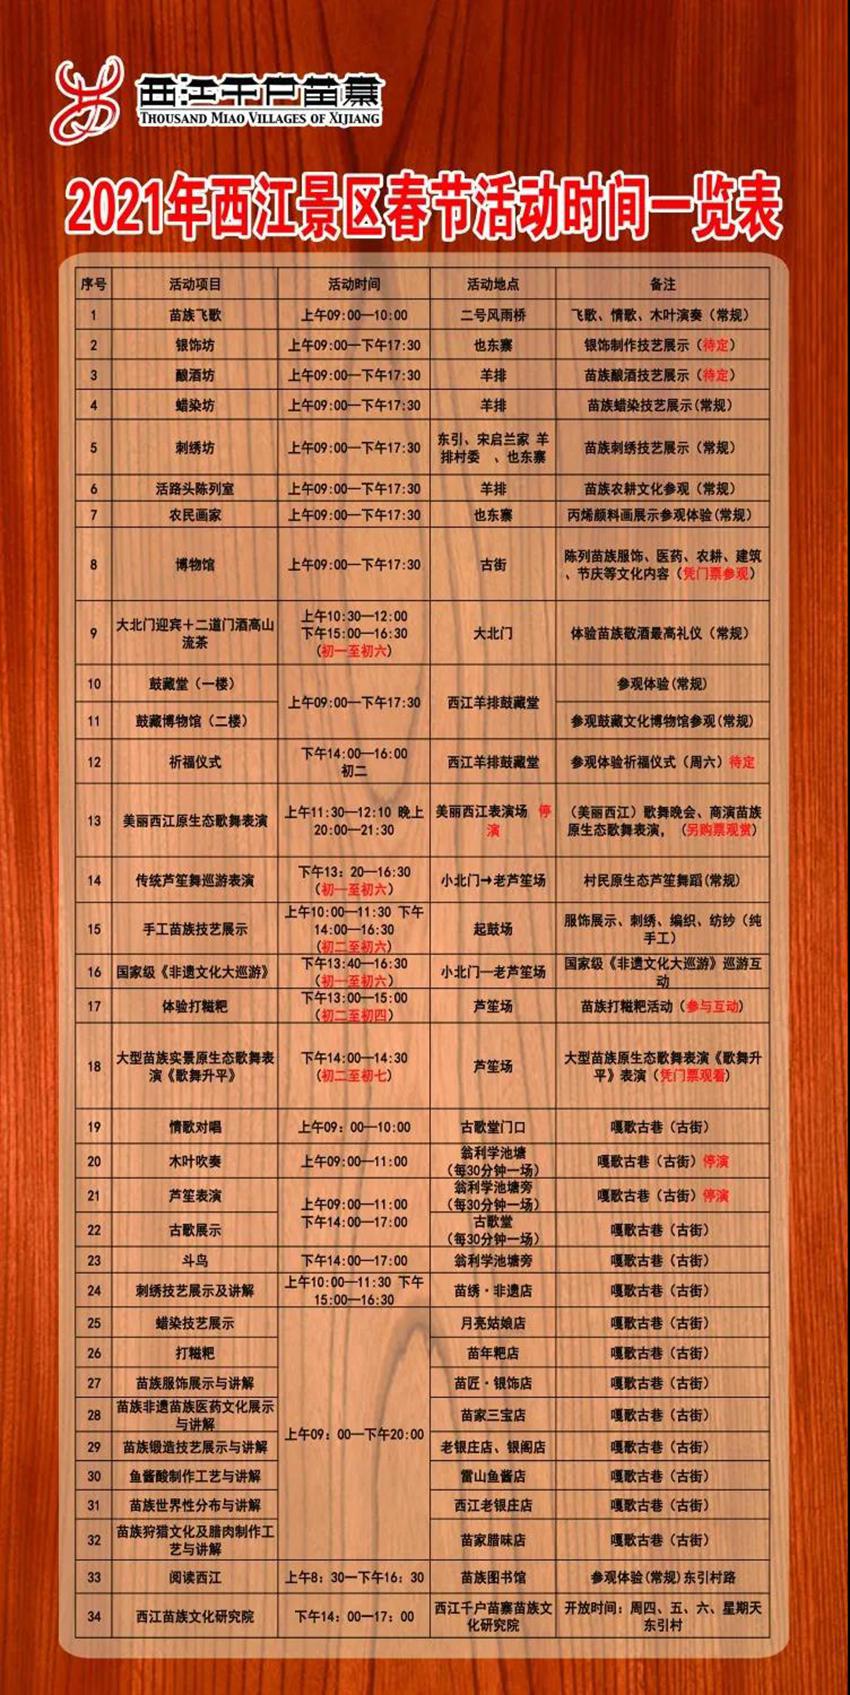 西江千户苗寨
THOUSAND MIAO VILLAGES OF XIJIANG
2021年西江景区春节活动时间一览表
序号 活动项目 活动时间 活动地点 备注
1 苗族飞歌 上午09:00—10:00 二号风雨桥 飞歌、情歌、木叶演奏（常规）
2 银饰坊 上午09:00—下午17:30 也东寨 银饰制作技艺展示（待定）
3 酿酒坊 上午09:00—下午17:30 羊排 苗族酿酒技艺展示（待定）
4 蜡染坊 上午09:00—下午17:30 羊排 苗族蜡染技艺展示(常规)
5 刺绣坊 上午09:00—下午17:30 东引、宋启兰家 羊
排村委 、也东寨 苗族刺绣技艺展示（常规）
6 活路头陈列室 上午09:00—下午17:30 羊排 苗族农耕文化参观（常规）
7 农民画家 上午09:00—下午17:30 也东寨 丙烯颜料画展示参观体验(常规)
8 博物馆 上午09:00—下午17:30 古街 陈列苗族服饰、医药、农耕、建筑
、节庆等文化内容（凭门票参观）
9 大北门迎宾＋二道门酒高山
流茶 上午10:30—12:00
下午15:00—16:30
(初一至初六) 大北门 体验苗族敬酒最高礼仪（常规）
10 鼓藏堂（一楼） 上午09:00—下午17:30 西江羊排鼓藏堂 参观体验(常规)
11 鼓藏博物馆（二楼） 参观鼓藏文化博物馆参观(常规)
12 祈福仪式 下午14:00—16:00
初二 西江羊排鼓藏堂 参观体验祈福仪式（周六）待定
13 美丽西江原生态歌舞表演 上午11:30—12:10 晚上
20:00—21:30 美丽西江表演场 停
演 （美丽西江）歌舞晚会、商演苗族
原生态歌舞表演，（另购票观赏）
14 传统芦笙舞巡游表演 下午13：20—16:30
（初一至初六） 小北门→老芦笙场 村民原生态芦笙舞蹈(常规)
15 手工苗族技艺展示 上午10:00—11:30 下午
14:00—16:30
(初二至初六) 起鼓场 服饰展示、刺绣、编织、纺纱（纯
手工）
16 国家级《非遗文化大巡游》 下午13:40—16:30
（初一至初六） 小北门—老芦笙场 国家级《非遗文化大巡游》巡游互
动
17 体验打糍粑 下午13:00—15:00
（初二至初四） 芦笙场 苗族打糍粑活动（参与互动）
18 大型苗族实景原生态歌舞表
演《歌舞升平》 下午14:00—14:30
(初二至初七) 芦笙场 大型苗族原生态歌舞表演《歌舞升
平》表演（凭门票观看）
19 情歌对唱 上午09：00—10:00 古歌堂门口 嘎歌古巷（古街）
20 木叶吹奏 上午09:00—11:00 翁利学池塘
（每30分钟一场） 嘎歌古巷（古街）停演
21 芦笙表演 上午09:00—11:00
下午14:00—17:00 翁利学池塘旁
（每30分钟一场） 嘎歌古巷（古街）停演
22 古歌展示 古歌堂
（每30分钟一场） 嘎歌古巷（古街）
23 斗鸟 下午14:00—17:00 翁利学池塘旁 嘎歌古巷（古街）
24 刺绣技艺展示及讲解 上午10:00—11:30 下午
15:00—16:30 苗绣·非遗店 嘎歌古巷（古街）
25 蜡染技艺展示 上午09：00—下午20:00 月亮姑娘店 嘎歌古巷（古街）
26 打糍粑 苗年粑店 嘎歌古巷（古街）
27 苗族服饰展示与讲解 苗匠·银饰店 嘎歌古巷（古街）
28 苗族非遗苗族医药文化展示
与讲解 苗家三宝店 嘎歌古巷（古街）
29 苗族锻造技艺展示与讲解 老银庄店、银阁店 嘎歌古巷（古街）
30 鱼酱酸制作工艺与讲解 雷山鱼酱店 嘎歌古巷（古街）
31 苗族世界性分布与讲解 西江老银庄店 嘎歌古巷（古街）
32 苗族狩猎文化及腊肉制作工
艺与讲解 苗家腊味店 嘎歌古巷（古街）
33 阅读西江 上午8：30—下午16：30 苗族图书馆 参观体验(常规)东引村路
34 西江苗族文化研究院 下午14：00—17：00 西江千户苗寨苗族文
化研究院 开放时间：周四、五、六、星期天
东引村